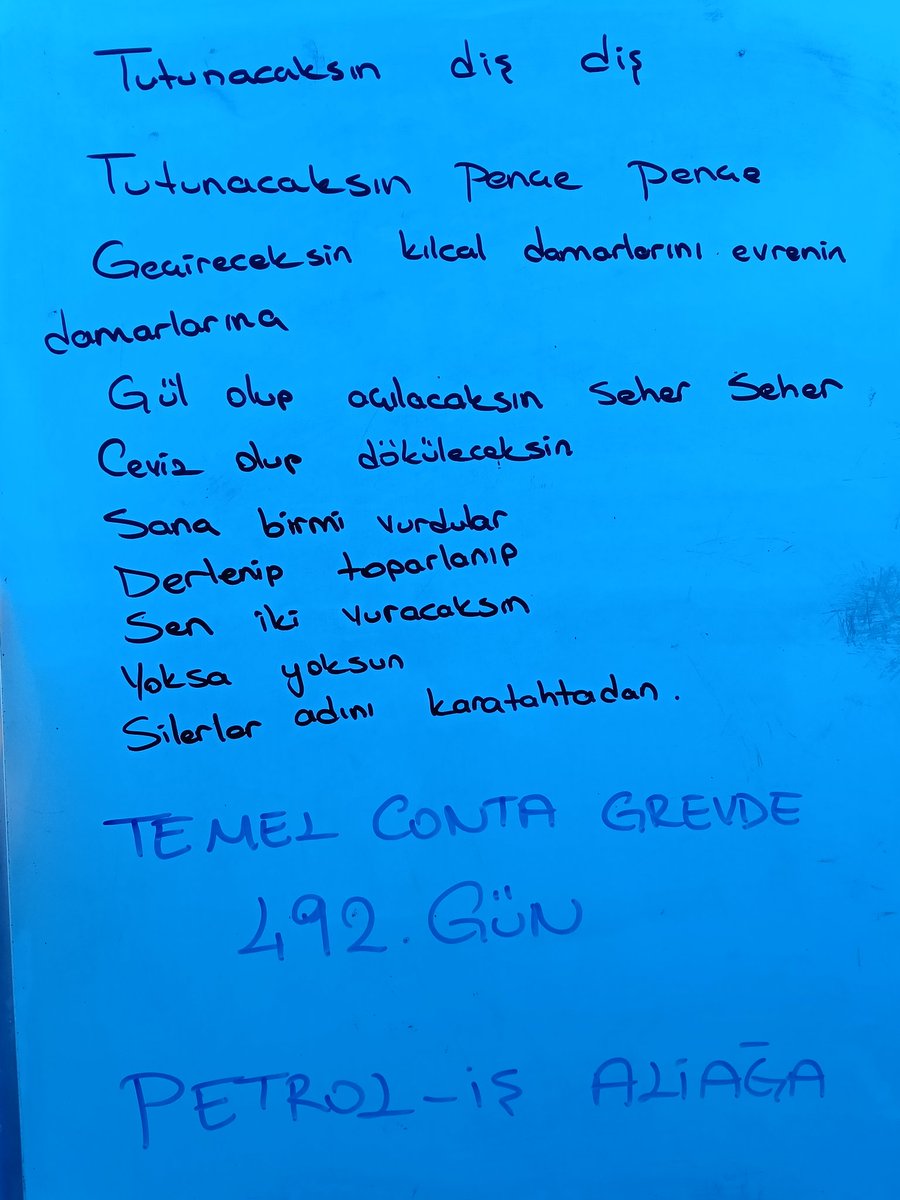 Tutunacaksın diş diş
Tutunacaksın pençe pençe
Geçireceksin kılcal damarlarını evrenin
damarlarına
Gül olup açılacaksın seher seher
Ceviz olup döküleceksin
Sana birmi vurdular
Derlenip toparlanıp
Sen iki vuracaksın
Yoksa yoksun
Silerler adını karatahtadan.
TEMEL CONTA GREVDE
492. GÜN
PETROL-İŞ ALİAĞA